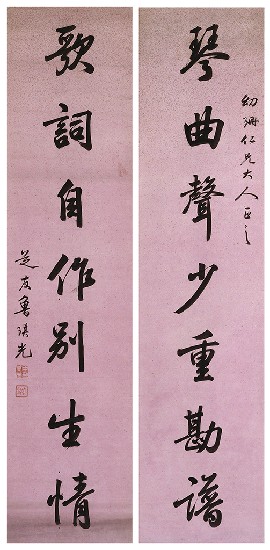 琴曲聲少重勘譜
幼珊仁兄大人正之
歌詞自作別生情
芝友魯琪光